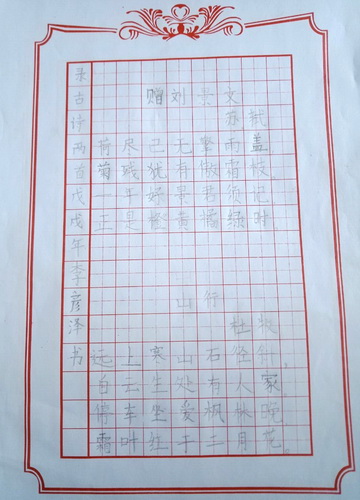 赠刘景文
苏轼
荷尽已无擎雨盖
菊残犹有傲霜枝
一年好景君须记
正是橙黄橘绿时
山行
杜牧
远上寒山石径斜。
白云生处有人家。
停车坐爱枫林晚
霜叶红于二月花。
录古诗两首戊戌年李彦泽书